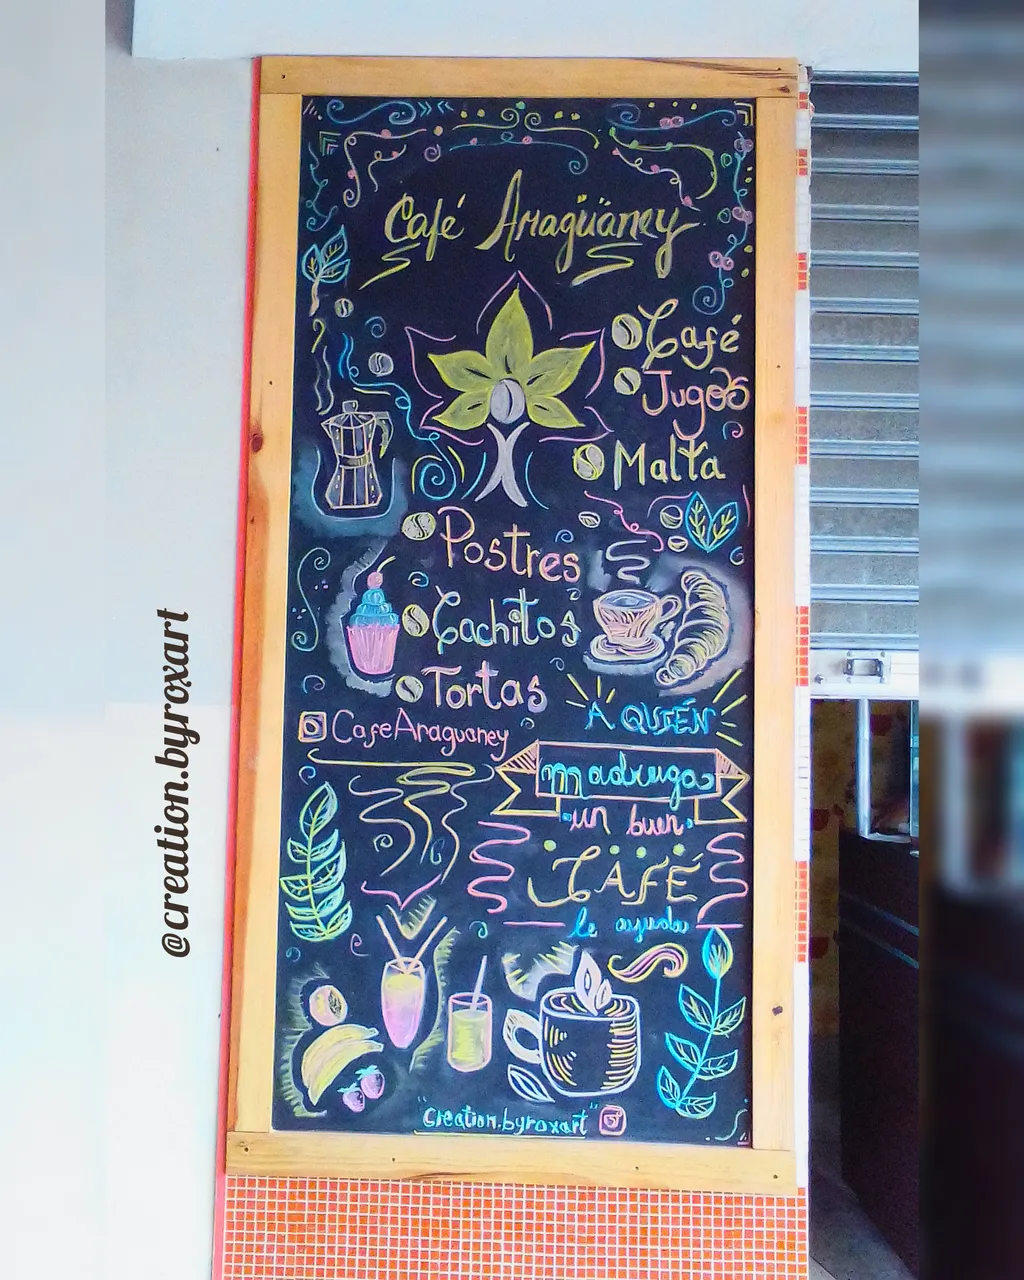 Café Aragüaney
Café
Jugos
Malta
Postres
Cachitos
Tortas
CafeAraguaney
A QUIÉN
madruga
un buen
CAFÉ
le ayuda
"creation.byroxart"
@creation.byroxart